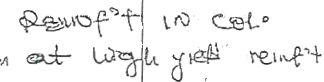 Reinf^t in Col.
at high yield reinf^t